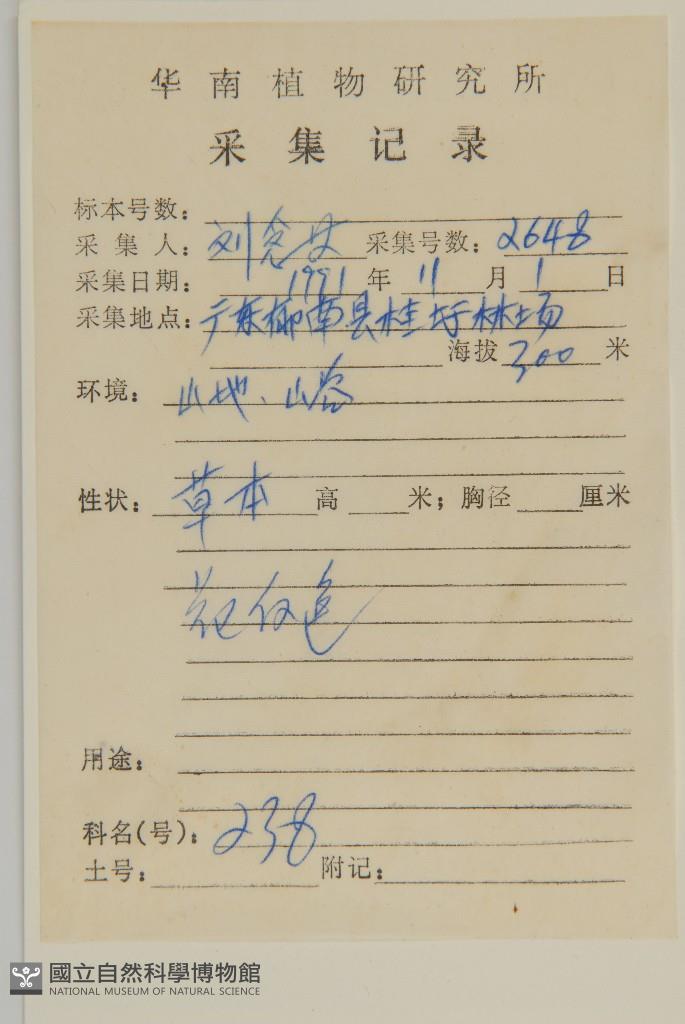 华南植物研究所
采集记录
标本号数：
采集人：刘念 采集号数：2648
采集日期：1991年11月1日
采集地点：广东郁南县桂圩林场
海拔300米
环境：山地、山谷
性状：草本 高 米；胸径 厘米
花 色
用途：
科名（号）：238
土号： 附记：
國立自然科學博物館
NATIONAL MUSEUM OF NATURAL SCIENCE